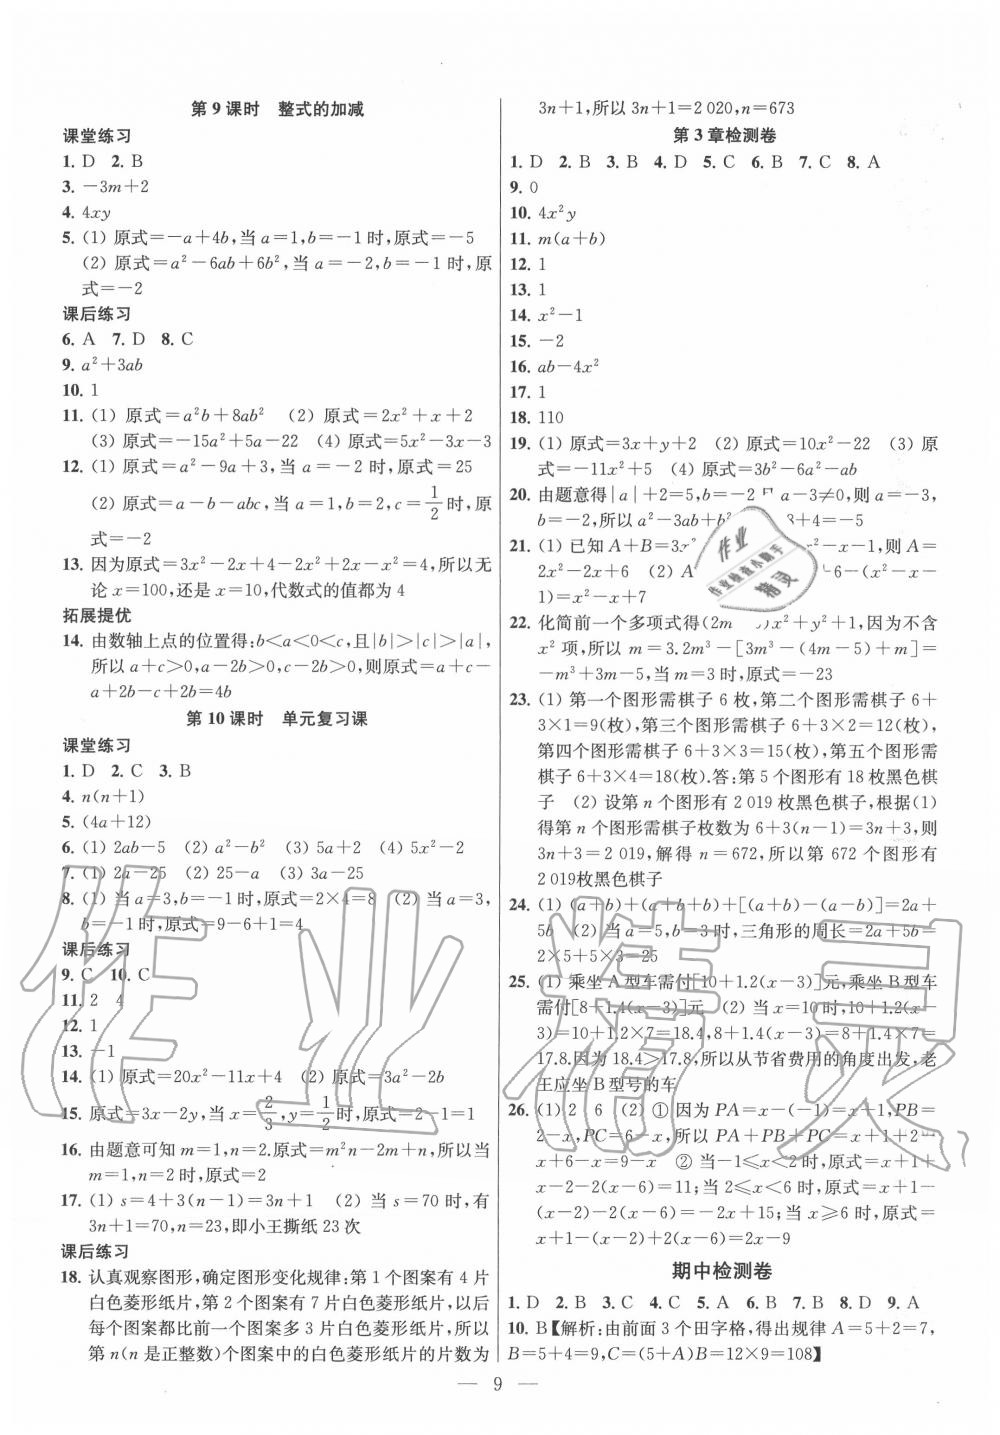 第 9 课时　整式的加减
课堂练习
1. D 2. B
3. －3m＋2
4. 4xy
5. (1) 原式＝－a＋4b,当 a＝1,b＝－1 时,原式＝－5
(2) 原式＝a²－6ab＋6b²,当 a＝－2,b＝－1 时,原
式＝－2
课后练习
6. A 7. D 8. C
9. a²＋3ab
10. 1
11. (1) 原式＝a²b＋8ab² (2) 原式＝2x²＋x＋2
(3) 原式＝－15a²＋5a－22 (4) 原式＝5x²－3x－3
12. (1) 原式＝a²－9a＋3,当 a＝－2 时,原式＝25
(2) 原式＝a－b－abc,当 a＝1,b＝2,c＝1/2 时,原
式＝－2
13. 因为原式＝3x²－2x＋4－2x²＋2x－x²＝4,所以无
论 x＝100,还是 x＝10,代数式的值都为 4
拓展提优
14. 由数轴上点的位置得:b＜a＜0＜c,且|b|＞|c|＞|a|,
所以 a＋c＞0,a－2b＞0,c－2b＞0,则原式＝a＋c－
a＋2b－c＋2b＝4b
第 10 课时　单元复习课
课堂练习
1. D 2. C 3. B
4. n(n＋1)
5. (4a＋12)
6. (1) 2ab－5 (2) a²－b² (3) 5a＋2 (4) 5x²－2
7. (1) 2a－25 (2) 25－a (3) 3a－25
8. (1) 当 a＝3,b＝－1 时,原式＝2×4＝8 (2) 当 a＝3,
b＝－1 时,原式＝9－6＋1＝4
课后练习
9. C 10. C
11. 2 4
12. 1
13. －1
14. (1) 原式＝20x²－11x＋4 (2) 原式＝3a²－2b
15. 原式＝3x－2y,当 x＝2/3,y＝1/2时,原式＝2－1＝1
16. 由题意可知 m＝1,n＝2.原式＝m²n－2m＋n,所以当
m＝1,n＝2时,原式＝2
17. (1) s＝4＋3(n－1)＝3n＋1 (2) 当 s＝70 时,有
3n＋1＝70,n＝23,即小王撕纸 23 次
课后练习
18. 认真观察图形,确定图形变化规律:第 1 个图案有 4 片
白色菱形纸片,第 2 个图案有 7 片白色菱形纸片,以后
每个图案都比前一个图案多 3 片白色菱形纸片,所以
第 n(n 是正整数)个图案中的白色菱形纸片的片数为
3n＋1,所以 3n＋1＝2 020,n＝673
第 3 章检测卷
1. D 2. B 3. B 4. D 5. C 6. B 7. C 8. A
9. 0
10. 4x²y
11. m(a＋b)
12. 1
13. 1
14. x²－1
15. －2
16. ab－4x²
17. 1
18. 110
19. (1) 原式＝3x＋y＋2 (2) 原式＝10x²－22 (3) 原
式＝－11x²＋5 (4) 原式＝3b²－6a²－ab
20. 由题意得|a|＋2＝5,b＝－2 a－3≠0,则 a＝－3,
b＝－2,所以 a²－3ab＋b² 8＋4＝－5
21. (1) 已知 A＋B＝3x² x²－x－1,则 A＝
2x²－2x＋6 (2) A －6＋(x²－x－
1)＝x²－x＋7
22. 化简前一个多项式得(2m )x²＋y²＋1,因为不含
x² 项,所以 m＝3.2m³－[3m³－(4m－5)＋m]＝
－m³＋3m－5,当 m＝3 时,原式＝－23
23. (1) 第一个图形需棋子 6 枚,第二个图形需棋子 6＋
3×1＝9(枚),第三个图形需棋子 6＋3×2＝12(枚),
第四个图形需棋子 6＋3×3＝15(枚),第五个图形需
棋子 6＋3×4＝18(枚).答:第 5 个图形有 18 枚黑色棋
子 (2) 设第 n 个图形有 2 019 枚黑色棋子,根据(1)
得第 n 个图形需棋子枚数为 6＋3(n－1)＝3n＋3,则
3n＋3＝2 019,解得 n＝672,所以第 672 个图形有
2 019枚黑色棋子
24. (1) (a＋b)＋(a＋b＋b)＋[(a＋b)－(a－b)]＝2a＋
5b (2) 当 a＝5,b＝3 时,三角形的周长＝2a＋5b＝
2×5＋5×3＝25
25. (1) 乘坐 A 型车需付[10＋1.2(x－3)]元,乘坐 B 型车
需付[8＋1.4(x－3)]元 (2) 当 x＝10 时,10＋1.2(x－
3)＝10＋1.2×7＝18.4,8＋1.4(x－3)＝8＋1.4×7＝
17.8.因为 18.4＞17.8,所以从节省费用的角度出发,老
王应坐 B 型号的车
26. (1) 2 6 (2) ① 因为 PA＝x－(－1)＝x＋1,PB＝
2－x,PC＝6－x,所以 PA＋PB＋PC＝x＋1＋2－
x＋6－x＝9－x ② 当－1≤x＜2时,原式＝x＋1＋
(x－2)－2(x－6)＝11;当 2≤x＜6 时,原式＝x＋1－
(x－2)－2(x－6)＝－2x＋15;当 x≥6 时,原式＝
x＋1－(x－2)＋2(x－6)＝2x－9
期中检测卷
1. D 2. B 3. B 4. C 5. A 6. B 7. B 8. D 9. A
10. B【解析:由前面 3 个田字格,得出规律 A＝5＋2＝7,
B＝5＋4＝9,C＝(5＋A)B＝12×9＝108】
— 9 —
作业
作业检查小助手
精灵
作业精灵